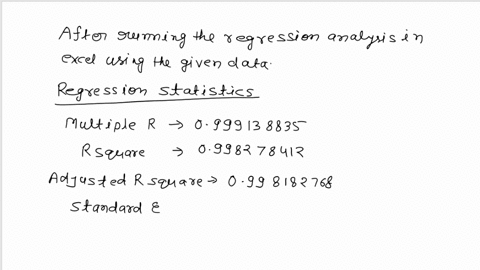 After running the regression analysis in
excel using the given data.
Regression Statistics
Multiple R → 0.999138835
R square → 0.998278412
Adjusted R square → 0.998182768
Standard E